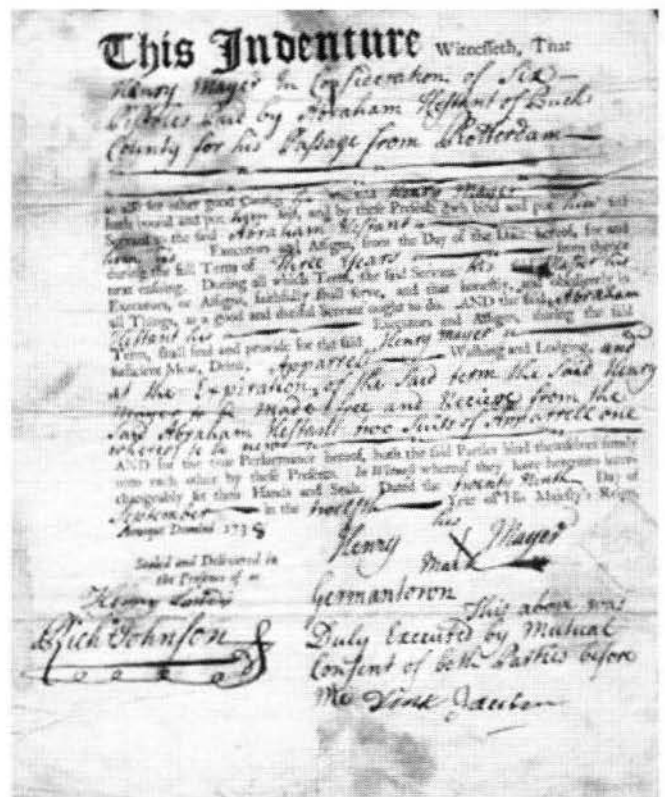 This Indenture Witnesseth, That
Henry Mayer In Consideration of Six
Pistoles paid by Abraham Hestant of Bucks
County for his Passage from Rotterdam
as also for other good Causes, he the said Henry Mayer
hath bound and put him self, and by these Presents doth bind and put him self
Servant to the said Abraham Hestant
him his Executors and Assigns, from the Day of the Date hereof, for and
during the full Term of Three Years from thence
next ensuing. During all which Term, the said Servant his said Master his
Executors, or Assigns, faithfully shall serve, and that honestly and obediently in
all Things, as a good and dutiful Servant ought to do. AND the said Abraham
Hestant his Executors and Assigns, during the said
Term, shall find and provide for the said Henry mayer
sufficient Meat, Drink, Apparrel, Washing and Lodging, and
at the Expiration of the Said term the Said Henry
Mayer to be made free and Recieve from the
Said Abraham Hestant two Suits of Apparrell one
whereof to be new
AND for the true Performance hereof, both the said Parties bind themselves firmly
unto each other by these Presents. In Witness whereof they have hereunto inter-
changeably set their Hands and Seals. Dated the twenty Ninth Day of
September in the twelfth Year of His Majesty's Reign,
Annoque Domini 1738
his
Henry X Mayer
Mark
Sealed and Delivered in
the Presence of us
Henry
Rich Johnson
Germantown
This above was
Duly Executed by Mutual
Consent of both Parties before
Me Dirk Jansen